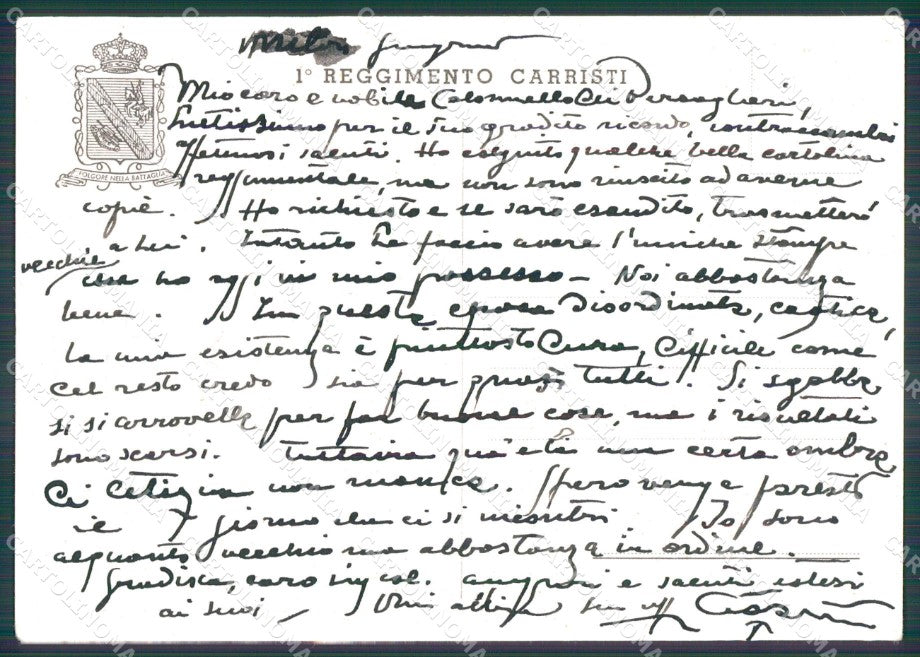 1° REGGIMENTO CARRISTI
FOLGORE NELLA BATTAGLIA
Mio caro e nobile Colonnello dei Bersaglieri,
per il Suo gradito ricordo,
saluti. Ho qualche bella cartolina
reggimentale, ma non sono riuscito ad averne
copie. Ho richiesto e se sarò esaudito, trasmetterò
a Lei. Intanto Le faccio avere l'uniche stampe
vecchie
oggi in mio possesso - Noi abbastanza
bene. In questa epoca disordinata, caotica,
la mia esistenza è piuttosto dura, difficile come
del resto credo sia per quasi tutti. Si sgobba,
si si arrovella per far buone cose, ma i risultati
sono scarsi. Tuttavia qua e là una certa ombra
di letizia non manca. Spero venga presto
il giorno che ci si incontri Io sono
alquanto vecchio ma abbastanza in ordine.
Gradisca, caro col. auguri e saluti estesi
ai suoi